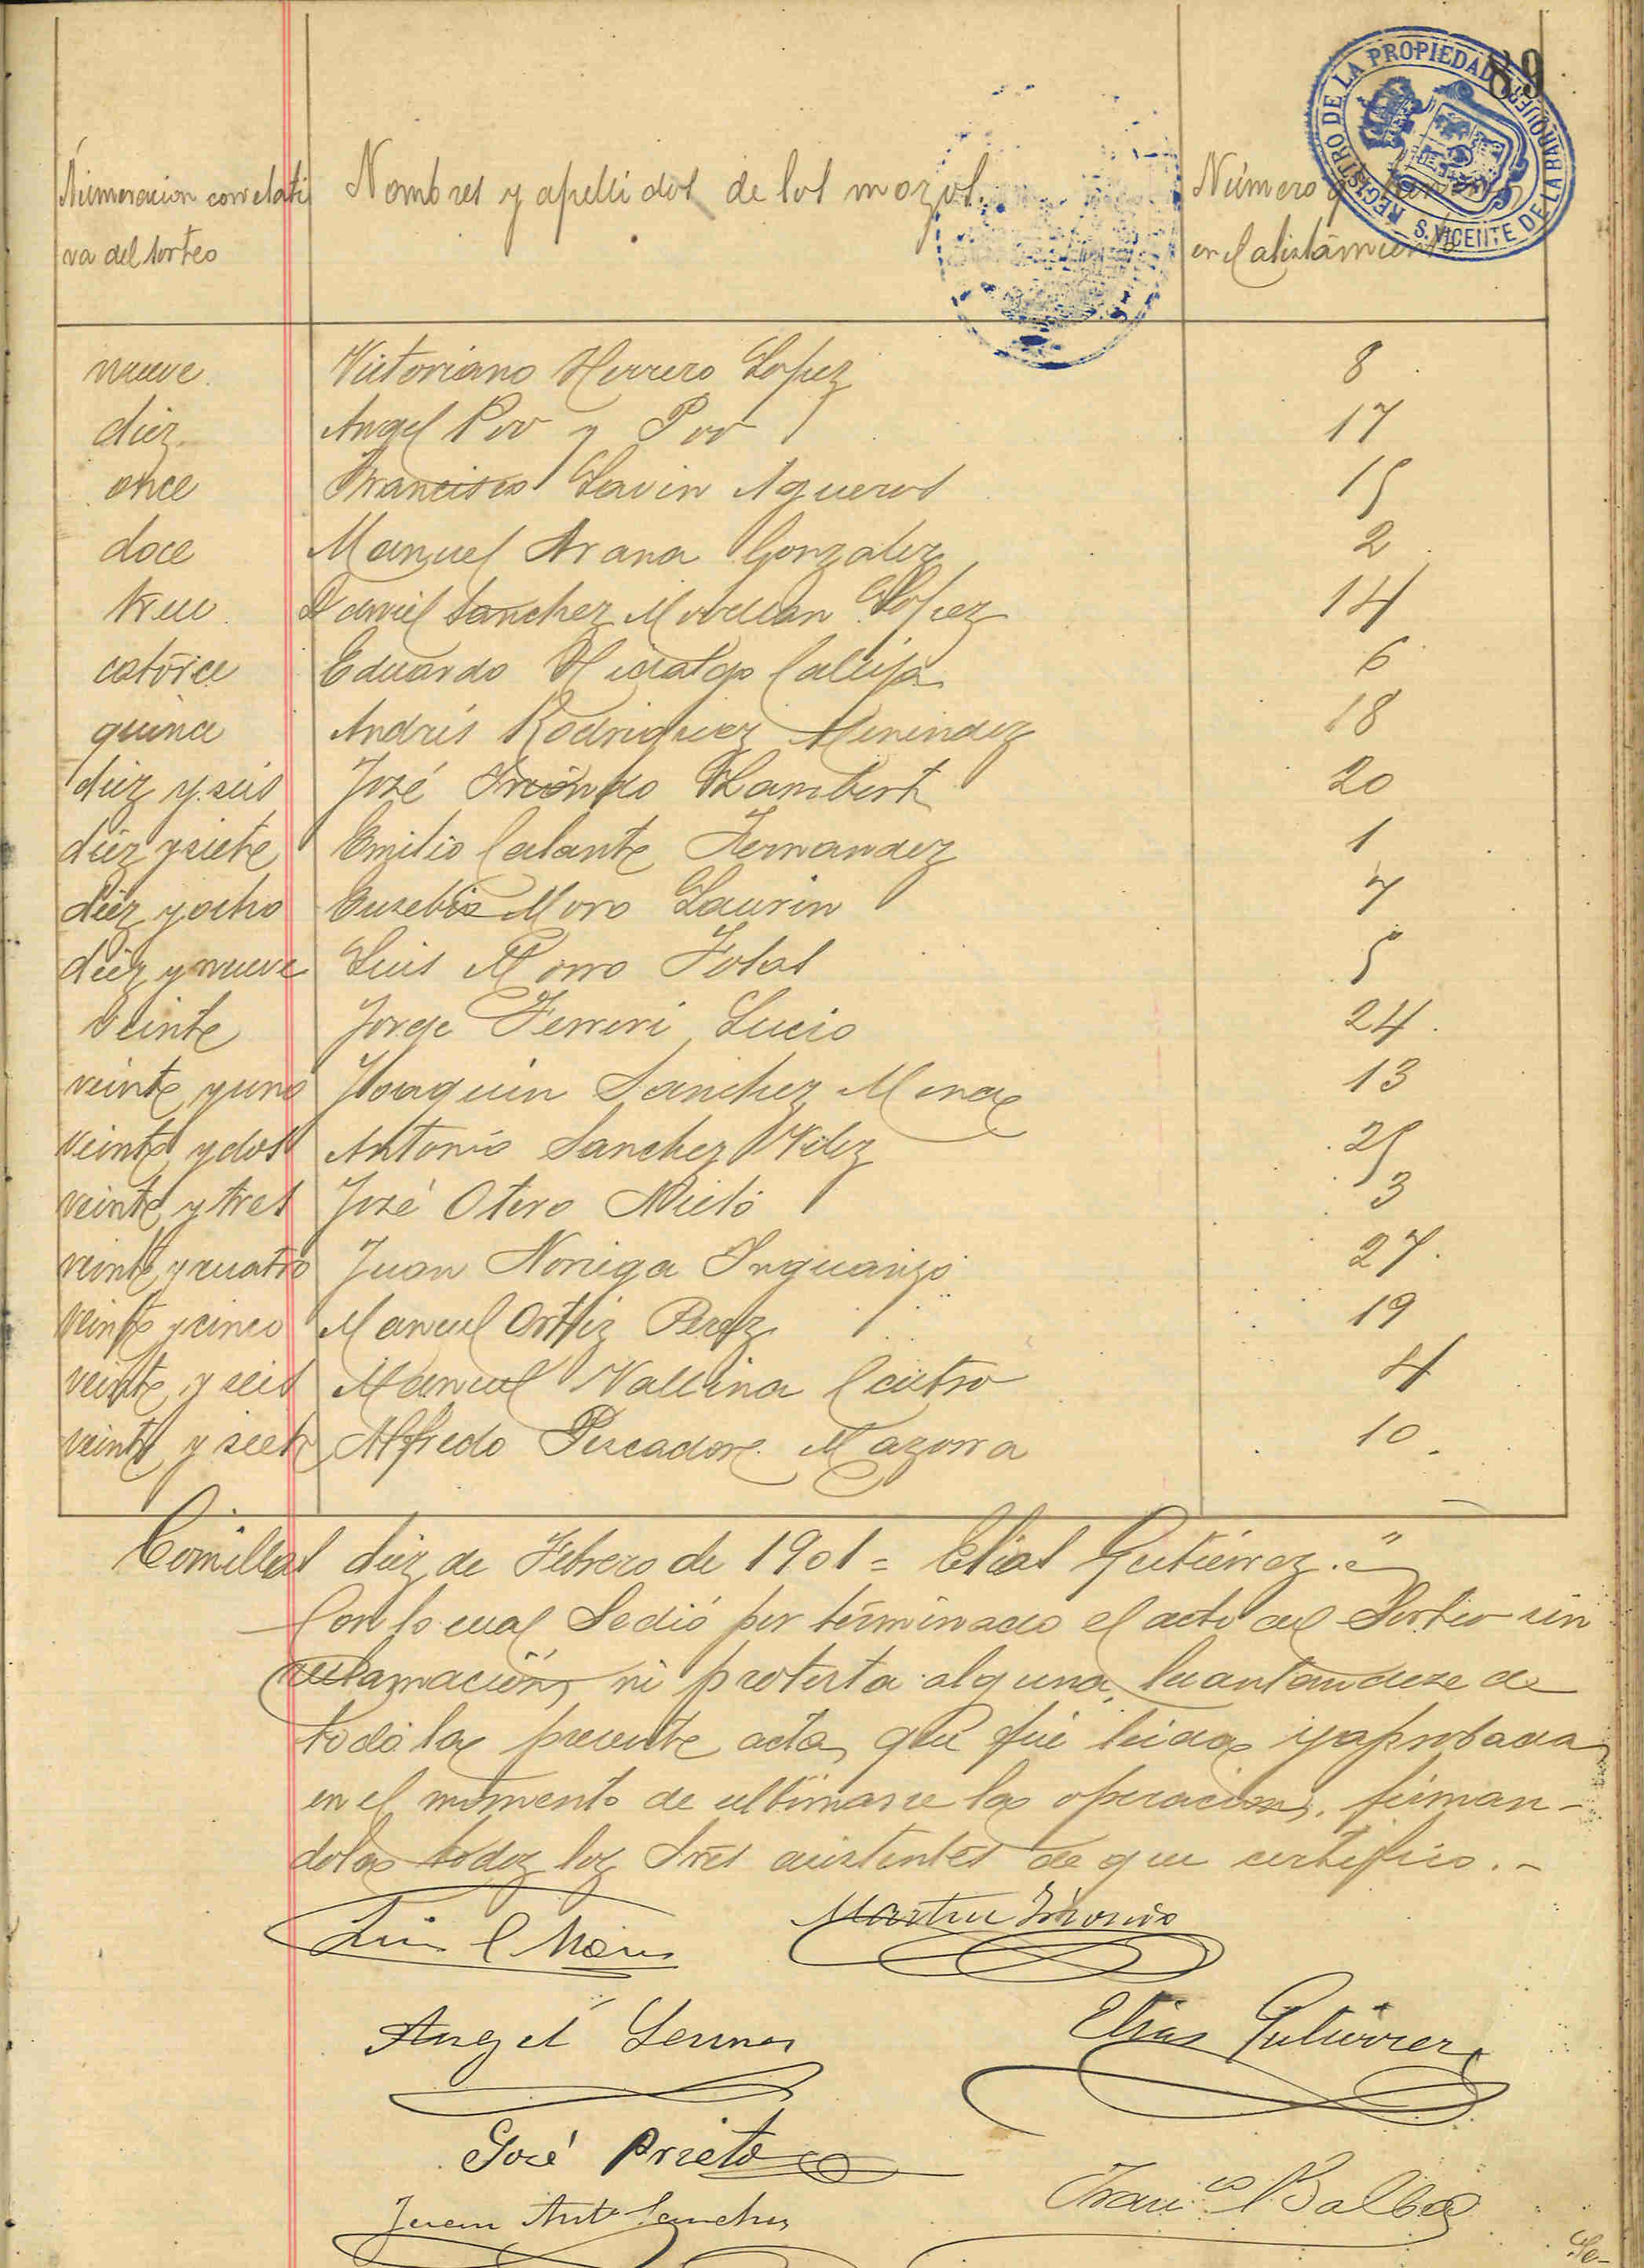 89
REGISTRO DE LA PROPIEDAD
S. VICENTE DE LA BARQUERA
Númeracion correlati
va del sorteo
Nombres y apellidos de los mozos
Número q
en el alistamiento
nueve Victoriano Herrero Lopez 8
diez Angel Poo y Poo 17
once Francisco Lavin Agueros 15
doce Manuel Arana Gonzalez 2
trece Daniel Sanchez Movellan Lopez 14
catorce Eduardo Hidalgo Calleja 6
quince Andrés Rodriguez Menendez 18
diez y seis José Triondo Lambert 20
diez y siete Emilio Calante Fernandez 1
diez y ocho Eusebio Moro Laurin 7
diez y nueve Luis Morro 5
veinte Jorge Ferreri Lucio 24
veinte y uno Joaquin Sanchez Mora 13
veinte y dos Antonio Sanchez Velez 25
veinte y tres José Otero Nieto 3
veinte y cuatro Juan Noriega Inguanzo 27
veinte y cinco Manuel Ortiz Perez 19
veinte y seis Manuel Vallina Castro 4
veinte y siete Alfredo Pescador Mazorra 10
Comillas diez de Febrero de 1901 = Elias Gutiérrez."
Con lo cual se dió por términado el acto del Sorteo sin
reclamación, ni protesta alguna, levantandose de
todo la presente acta, que fué leida y aprobada
en el momento de ultimarse la operacion, firman-
dola todos los Sres asistentes de que certifico.-
Martin
Angel
Elias Gutierrez
José Prieto
Juan Antº Sanchez
Franº Balbas
Se-